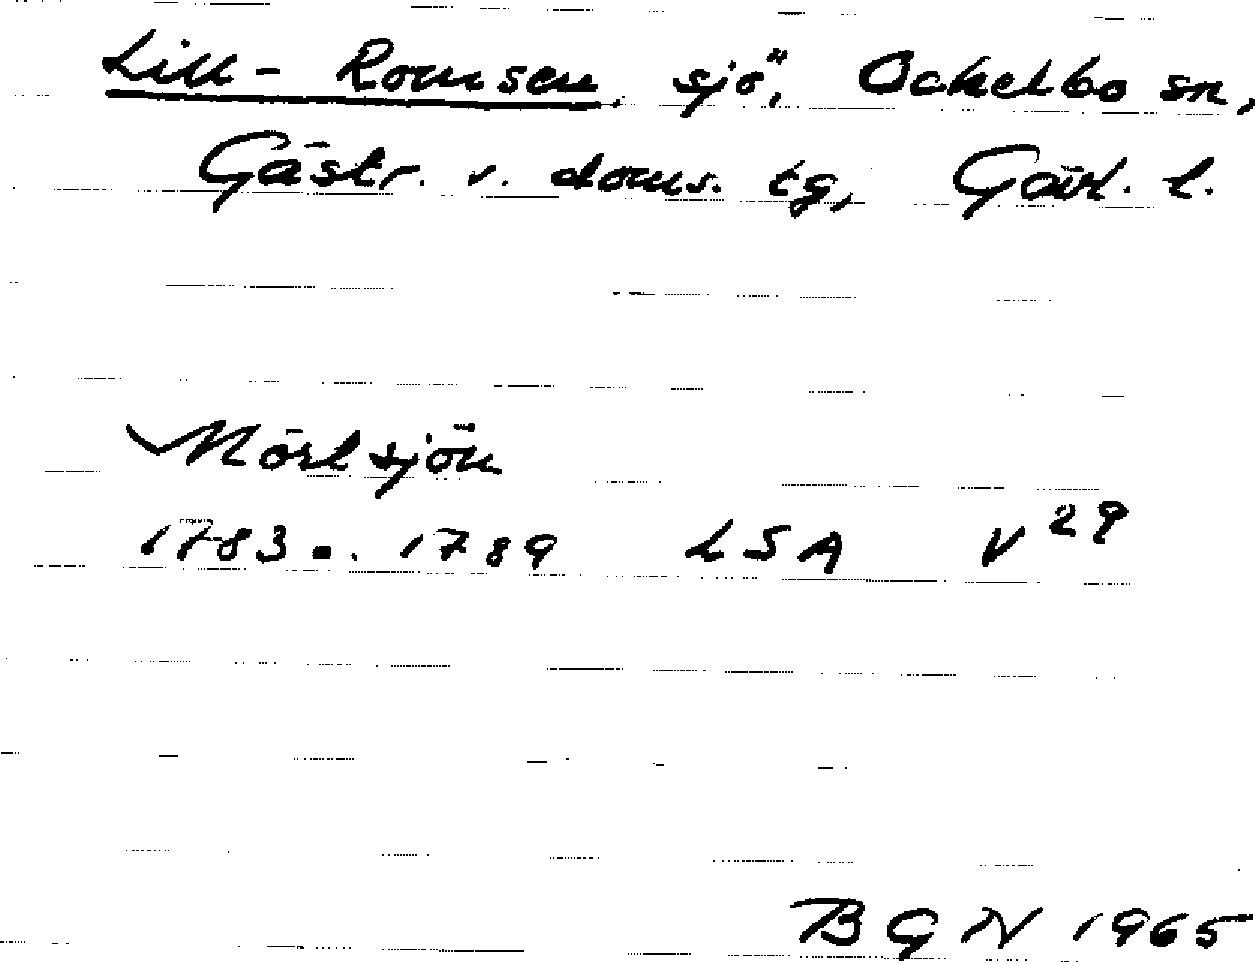 Lill-Romsen, sjö, Ockelbo sn,
Gästr. v. doms. tg, Gävl. l.
Mörtsjön
1783 o. 1789 LSA V 29
BGN 1965